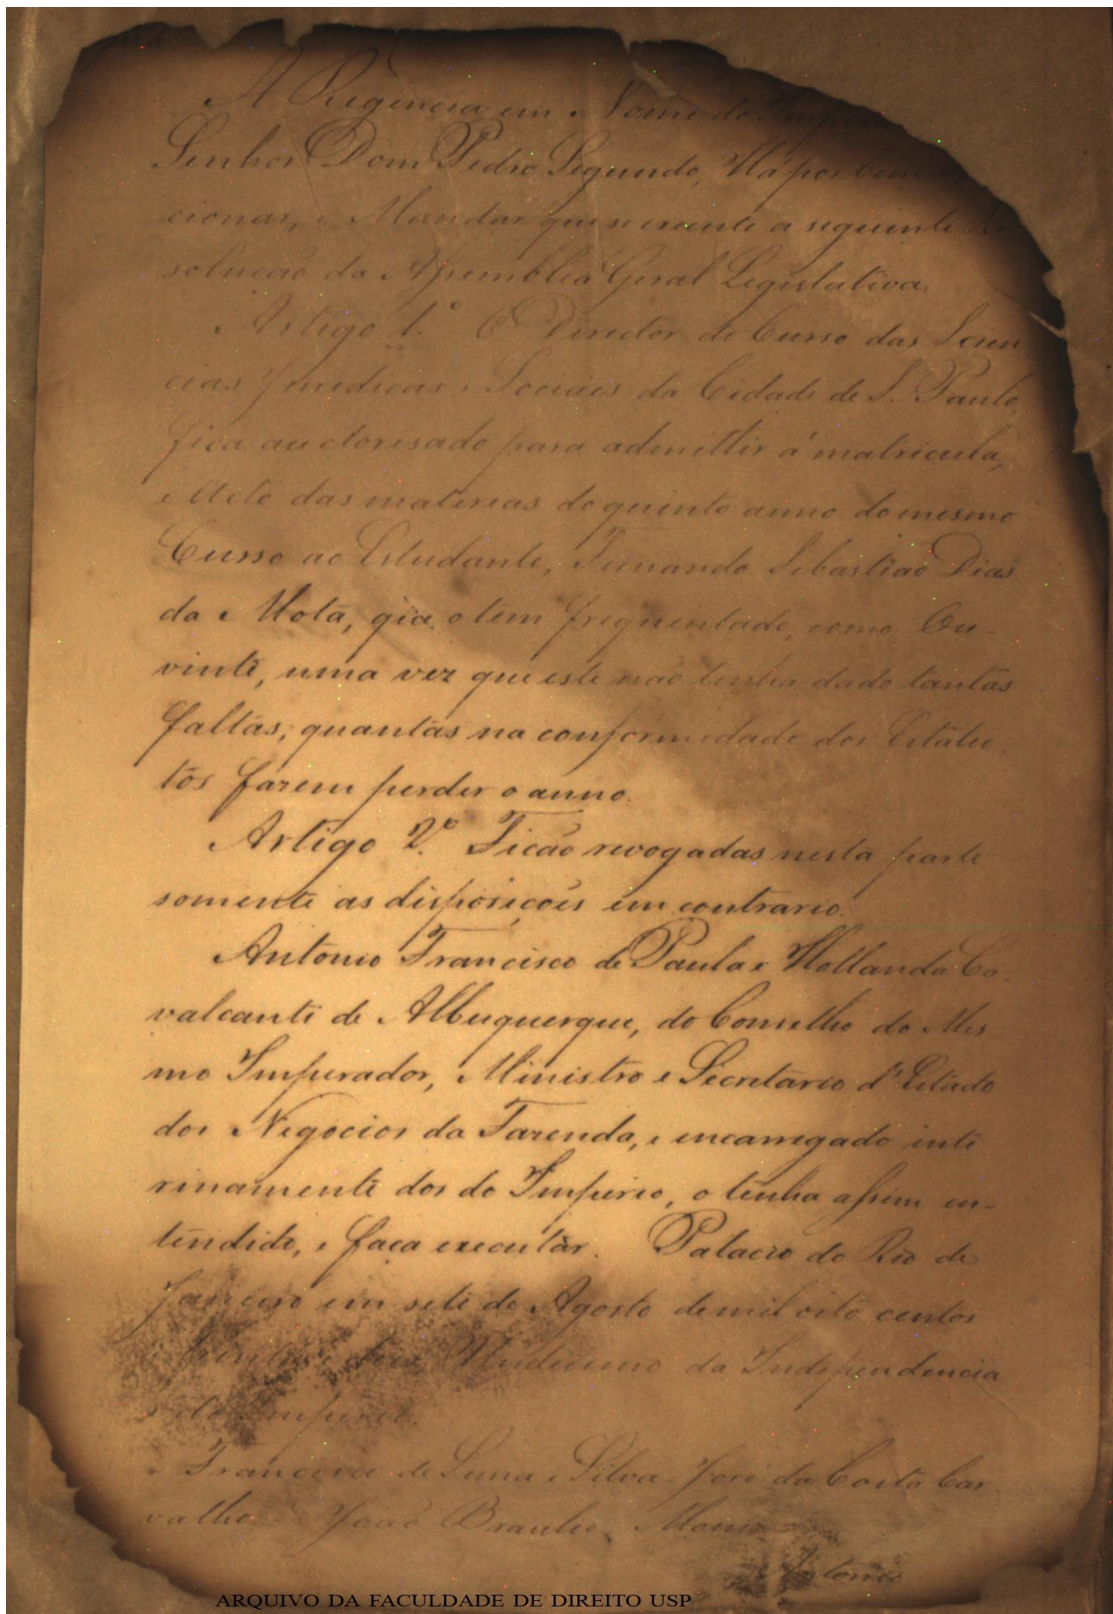 A Regencia em Nome do Imperador
Senhor Dom Pedro Segundo, Ha por bem
cionar, e Mandar que se execute a seguinte Re
solução da Assemblea Geral Legislativa.
Artigo 1.º O Director do Curso das Scien
cias Juridicas e Sociáes da Cidade de S. Paulo,
fica auctorisado para admittir á matricula,
e Acto das materias do quinto anno do mesmo
Curso ao Estudante, Fernando Sebastião Dias
da Mota, que o tem frequentado, como Ou-
vinte, uma vez que este não tenha dado tantas
faltas, quantas na conformidade dos Estatu
tos fazem perder o anno.
Artigo 2.º Ficão revogadas nesta parte
somente as disposições em contrario.
Antonio Francisco de Paula e Hollanda Ca
valcanti de Albuquerque, do Conselho do Mes
mo Imperador, Ministro e Secretario d'Estado
dos Negocios da Fazenda, e encarregado inte
rinamente dos do Imperio, o tenha assim en-
tendido, e faça executar. Palacio do Rio de
Janeiro em sete de Agosto de mil oito centos
e trinta e dous Undecimo da Independencia
e do Imperio.
Francisco de Lima e Silva - José da Costa Car
valho - João Braulio Moniz
Antonio
ARQUIVO DA FACULDADE DE DIREITO USP